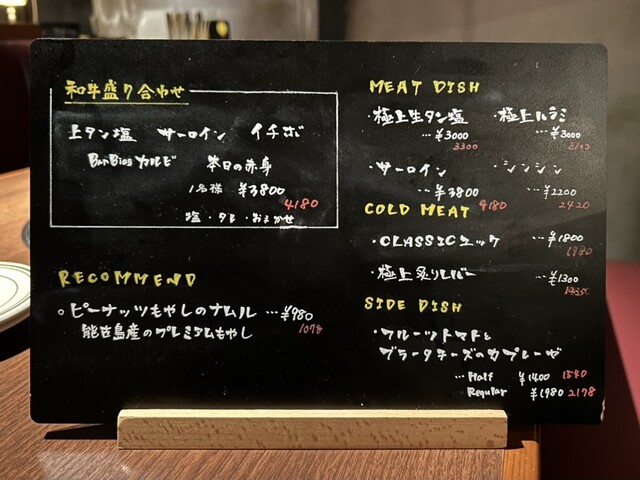 和牛盛り合わせ
上タン塩 サーロイン イチボ
BunBinsカルビ 本日の赤身
1名様 ¥3800
4180
塩・タレ・おまかせ
RECOMMEND
ピーナッツもやしのナムル …¥980
能古島産のプレミアムもやし 1078
MEAT DISH
・極上生タン塩 ・極上ハラミ
…¥3000 …¥3000
3300 3300
・サーロイン ・シンシン
…¥3800 …¥2200
4180 2420
COLD MEAT
・CLASSICユッケ …¥1800
1980
・極上炙りレバー …¥1300
1430
SIDE DISH
・フルーツトマトと
ブラータチーズのカプレーゼ
…Half ¥1400 1540
Regular ¥1980 2178